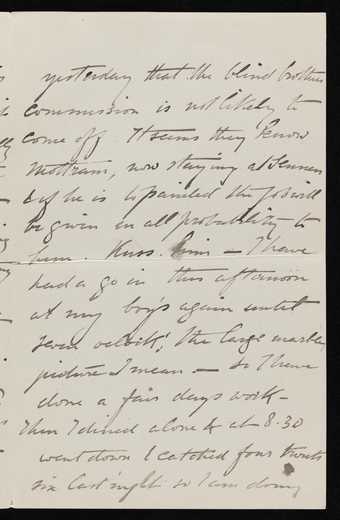 yesterday that the blind brothers
commission is not likely to
come off. It seems they know
Mottram, now staying at Sennen
& if he is to painted the job will
be given in all probability to
him. Kuss. him — I have
had a go in this afternoon
at my boys again until
seven oclock, the large marble
picture I mean — so I have
done a fair days work —
Then I dined alone & at 8.30
went down & catched four trouts
six last night so I am doing